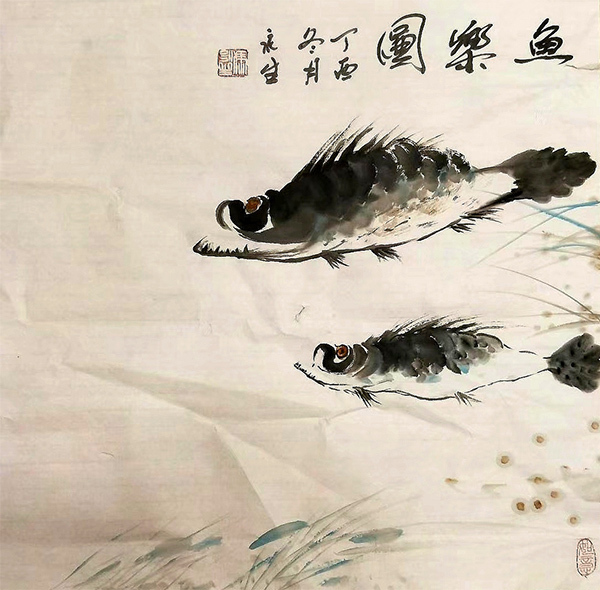 魚樂圖
丁酉
冬月
永生
如意